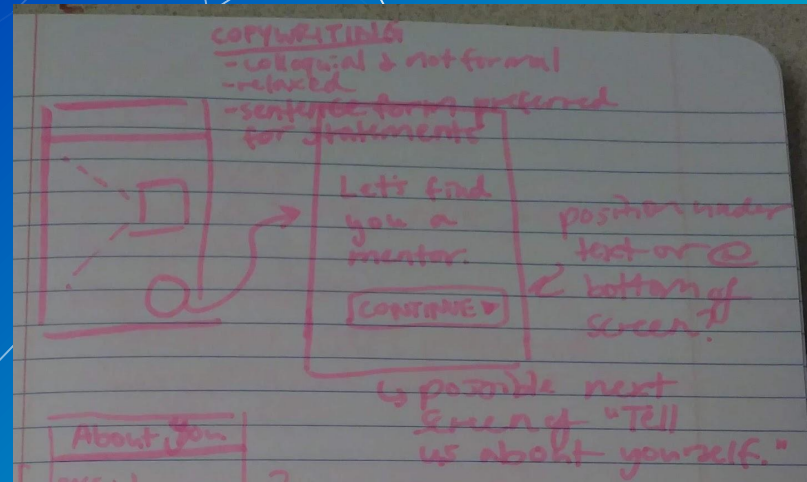 COPYWRITING
- colloquial & not formal
- relaxed
- sentence form preferred
for statements
Let's find
you a
mentor.
CONTINUE
position under
text or @
bottom of
screen?
↳ possible next
screen of "Tell
us about yourself."
About you